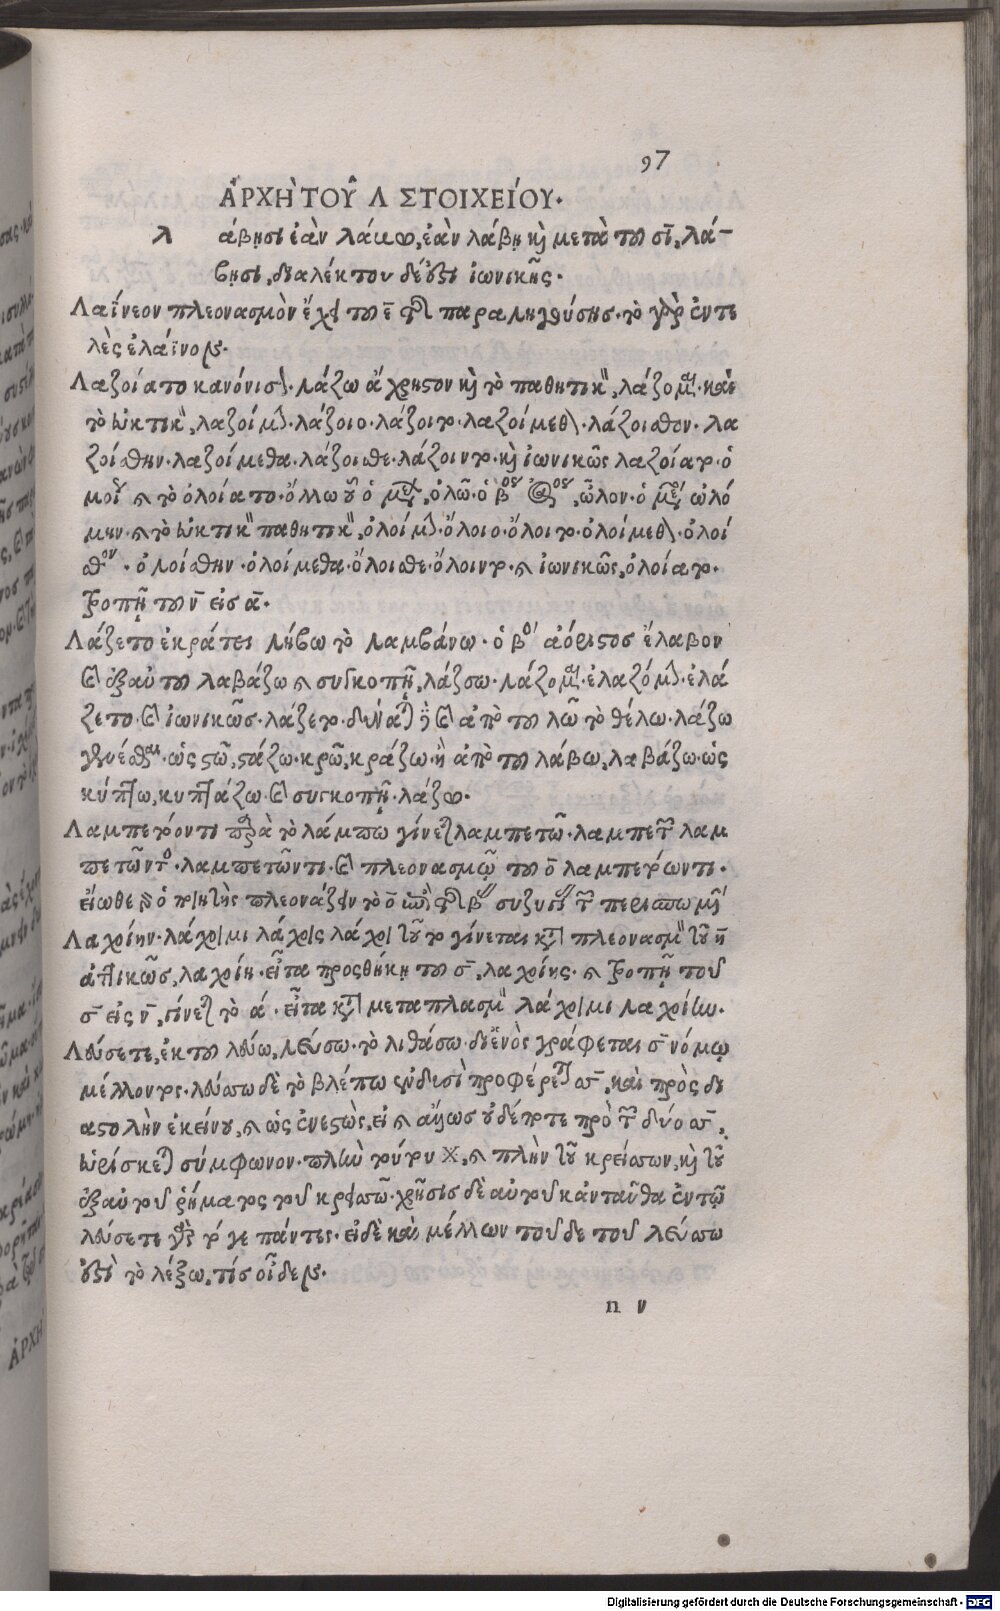 97
ἈΡΧῊ ΤΟΥ͂ Λ ΣΤΟΙΧΕΊΟΥ.
λ άβῃσι ἐὰν λάβω, ἐὰν λάβῃ καὶ μετὰ του σῖ, λά-
βῃσι, διαλέκτου δέ ἐστι ἰωνικῆς.
Λαΐνεον πλεονασμὸν ἔχει του ε̄ τῆ παραληγούσης. τὸ γὰρ ἐντε
λὲς ἐλάϊνος.
Λαζοίατο κανόνισ. λάζω ἄχρηστον καὶ τὸ παθητικ, λάζομαι. καὶ
τὸ εὐκτικ, λαζοίμ. λάζοιο. λάζοιτο. λαζοίμεθ. λάζοισθον. λα
ζοίσθην. λαζοίμεθα. λάζοισθε. λάζοιντο. καὶ ἰωνικῶς λαζοίατο. ὁ
μοί καὶ τὸ ὀλοίατο. ὄλλω οὗ ὁ μέλ, ὀλῶ. ὁ β ἀόρ, ὦλον. ὁ μέσ ὠλό
μην. καὶ τὸ εὐκτικ παθητικ, ὀλοίμ. ὄλοιο. ὄλοιτο. ὀλοίμεθ. ὀλοί
σθον. ὀλοίσθην. ὀλοίμεθα. ὄλοισθε. ὄλοιντο. καὶ ἰωνικῶς, ὀλοίατο.
τροπῇ του ν̄ εἰσ ᾱ.
Λάζετο ἐκράτει λήβω τὸ λαμβάνω. ὁ β ἀόριστος ἔλαβον
καὶ ἐξ αὐτου λαβάζω καὶ συγκοπῇ, λάζω. λάζομαι. ἐλαζόμ. ἐλά
ζετο. καὶ ἰωνικῶς. λάζετο. δύναται ἢ καὶ ἀπὸ του λῶ τὸ θέλω. λάζω
γενέσθαι. ὡς στῶ, στάζω. κρῶ, κράζω. ἢ ἀπὸ του λάβω, λαβάζω. ὡς
κύπτω, κυπτάζω. καὶ συγκοπῇ. λάζω.
Λαμπετόοντι παρὰ τὸ λάμπω γίνεται λαμπετῶ. λαμπετ λαμ
πετῶντο. λαμπετῶντι. καὶ πλεονασμῷ του ο̄ λαμπετόωντι.
εἴωθε ὁ ποιητὴς πλεονάζειν τὸ ο̄ ἐπὶ τῆ β συζυγί τ περισπωμ
Λαχοίην. λάχοιμι λάχοις λάχοι τοῦτο γίνεται κατὰ πλεονασμ τοῦ η̄
ἀττικῶς, λαχοίη. εἶτα προσθήκῃ του σ̄, λαχοίης. καὶ τροπῇ τοῦ
σ̄ εἰς ν̄, γίνεται τὸ ά. εἶτα κατὰ μεταπλασμ λάχοιμι λαχοίην.
Λεύσετε, ἐκ του λεύω, λεύσω. τὸ λιθάσω. δι' ἑνὸς γράφεται σ̄ νόμῳ
μέλλοντος. λεύσσω δὲ τὸ βλέπω ἐνδυσὶ προφέρεται σσ̄, καὶ πρὸς δι
αστολὴν ἐκείνου, καὶ ὡς ἐνεστὼς, εἰ καὶ ἄλλως οὐδέποτε πρὸ τ δύο σσ̄,
εὑρίσκεται σύμφωνον. πλὴν τούτου χ, καὶ πλὴν τοῦ κρείσσων, καὶ τοῦ
ἐξ αὐτου ῥήματος του κρεισσῶ. χρῆσις δὲ αὐτου κἀνταῦθα ἐν τῷ
λεύσετε γὰρ τό γε πάντες. εἰ δὲ καὶ μέλλων τοῦδε τοῦ λεύσσω
ἐστὶ τὸ λέξω, τίς οἶδεν.
n v
Digitalisierung gefördert durch die Deutsche Forschungsgemeinschaft - DFG